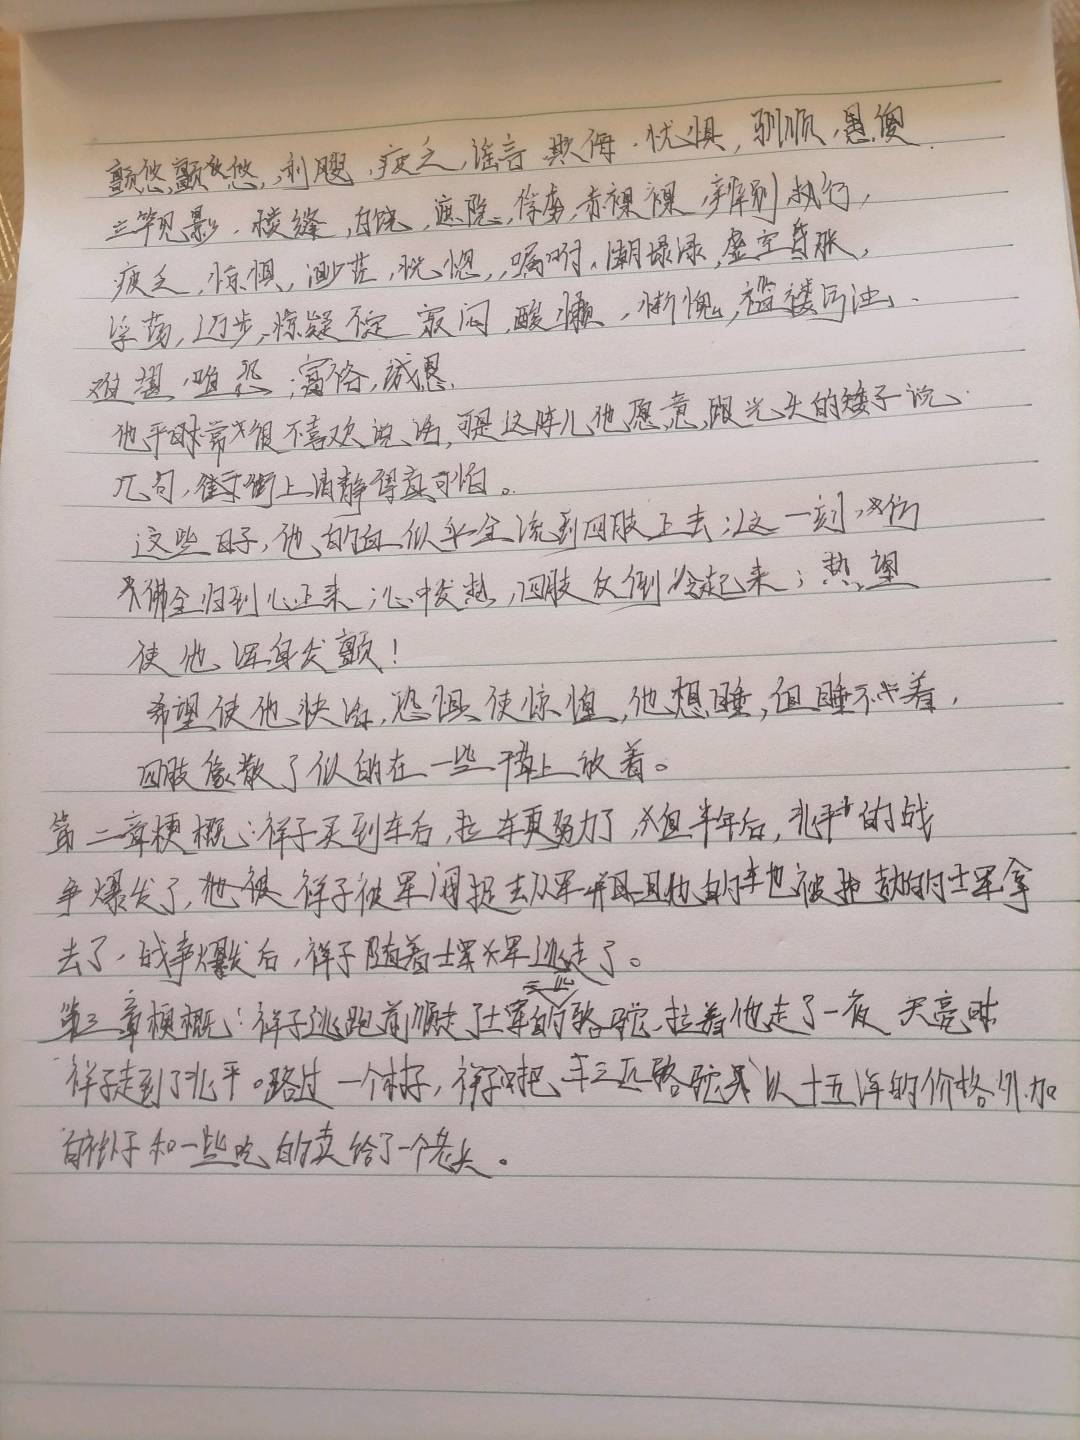 颤悠,颤悠悠,利飕,疲乏,谣言 欺侮,忧惧,驯顺,愚傻.
立竿见影,棱缝,白饶,遮隐,侥幸,赤裸裸,辨别,执行,
疲乏,惊惧,渺茫,恍惚,嘱咐,潮绿绿,虚空,身胀,
浮荡,迈步,惊疑不定 寂闷,酸懒,惭愧,褴褛污浊,
难堪,咀怨,富裕,诚恳.
他平时常很不喜欢说话,可是这阵儿他愿意跟光头的矮子说
几句,街上清静得真可怕。
这些日子,他的血似乎全流到四肢上去;这一刻,仿
佛全归到心上来;心中发热,四肢反倒冷起来;热望
使他浑身发颤!
希望使他快活,恐惧使惊惶,他想睡,但睡不着,
四肢像散了似的在一些干草上放着。
第二章梗概:祥子买到车后,拉车更努力了 但半年后,北平的战
争爆发了,祥子被军阀捉去从军并且他的车也被士军拿
去了,战争爆发后,祥子随着士军逃走了。
第三章梗概:祥子逃跑前顺走了士军的三匹骆驼,拉着他走了一夜 天亮时
祥子走到了北平。路过一个村子,祥子把三匹骆驼以十五洋的价格外加
白衬子和一些吃的卖给了一个老头。